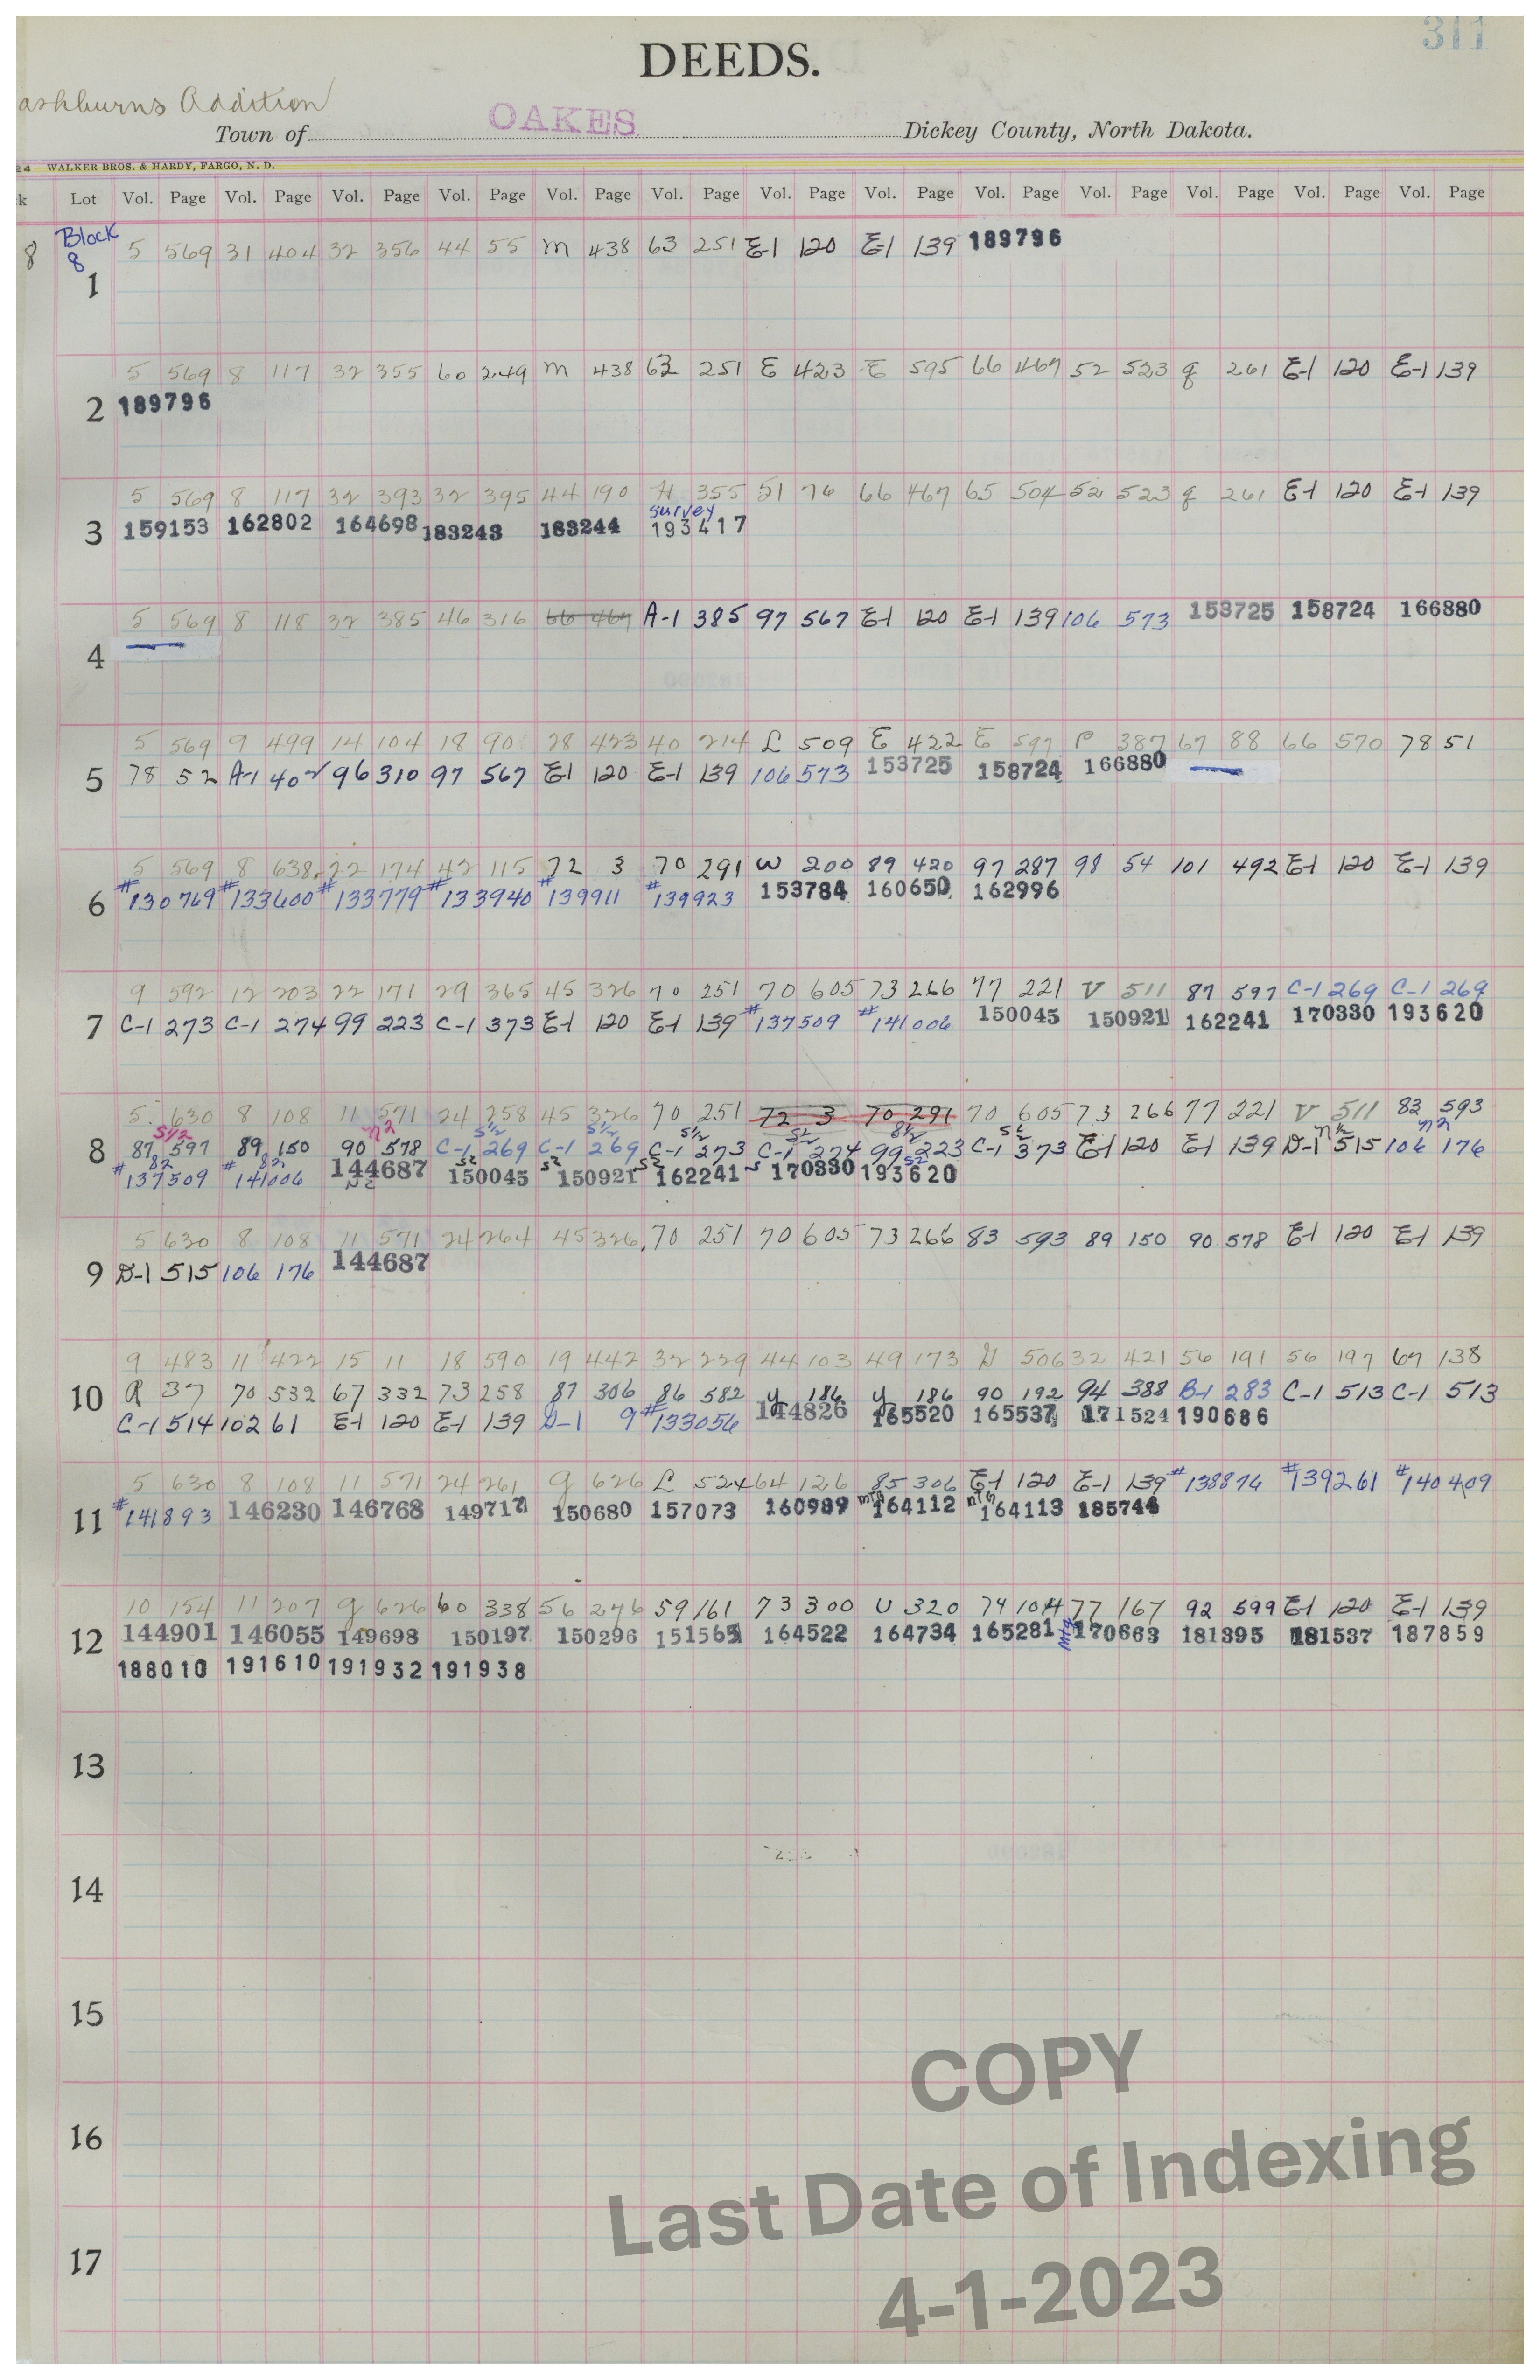 311
DEEDS.
ashburns Addition
Town of OAKES Dickey County, North Dakota.
24 WALKER BROS. & HARDY, FARGO, N. D.
k Lot Vol. Page Vol. Page Vol. Page Vol. Page Vol. Page Vol. Page Vol. Page Vol. Page Vol. Page Vol. Page Vol. Page Vol. Page Vol. Page
Block
8
8 5 569 31 404 32 356 44 55 M 438 63 251 E-1 120 E-1 139 189796
1
5 569 8 117 32 355 60 249 M 438 63 251 E 423 E 595 66 467 52 523 g 261 E-1 120 E-1 139
2 189796
5 569 8 117 32 393 32 395 44 190 H 355 51 76 66 467 65 504 52 523 g 261 E-1 120 E-1 139
survey
3 159153 162802 164698 183243 183244 193417
5 569 8 118 32 385 46 316 66 467 A-1 385 97 567 E-1 120 E-1 139 106 573 153725 158724 166880
4
5 569 9 499 14 104 18 90 28 423 40 214 L 509 E 422 E 597 P 387 67 88 66 570 78 51
5 78 52 A-1 402 96 310 97 567 E-1 120 E-1 139 106 573 153725 158724 166880
5 569 8 638 22 174 42 115 72 3 70 291 W 200 89 420 97 287 98 54 101 492 E-1 120 E-1 139
6 #130769 #133600 #133779 #133940 #139911 #139923 153784 160650 162996
9 592 12 203 22 171 29 365 45 326 70 251 70 605 73 266 77 221 V 511 87 597 C-1 269 C-1 269
7 C-1 273 C-1 274 99 223 C-1 373 E-1 120 E-1 139 #137509 #141006 150045 150921 162241 170330 193620
5 630 8 108 11 571 24 258 45 326 70 251 72 3 70 291 70 605 73 266 77 221 V 511 83 593
S1/2 N2 S1/2 S1/2 S1/2 S1/2 S1/2 S1/2 N1/2 N2
8 87 597 89 150 90 578 C-1 269 C-1 269 C-1 273 C-1 274 99 223 C-1 373 E-1 120 E-1 139 D-1 515 106 176
S2 S2 S2 S2 S2 S S2
#137509 #141006 144687 150045 150921 162241 170330 193620
N2
5 630 8 108 11 571 24 264 45 326 70 251 70 605 73 266 83 593 89 150 90 578 E-1 120 E-1 139
9 D-1 515 106 176 144687
9 483 11 422 15 11 18 590 19 442 32 229 44 103 49 173 D 506 32 421 56 191 56 197 67 138
10 R 37 70 532 67 332 73 258 87 306 86 582 Y 186 Y 186 90 192 94 388 B-1 283 C-1 513 C-1 513
C-1 514 102 61 E-1 120 E-1 139 D-1 9 #133056 144826 165520 165537 171524 190686
5 630 8 108 11 571 24 261 g 626 L 524 64 126 85 306 E-1 120 E-1 139 #138876 #139261 #140409
11 #141893 146230 146768 149717 150680 157073 160989 mtg 164112 mtg 164113 185744
10 154 11 207 g 626 60 338 56 246 59 161 73 300 U 320 74 104 77 167 92 599 E-1 120 E-1 139
12 144901 146055 149698 150197 150296 151565 164522 164734 165281 Mtg 170663 181395 181537 187859
188010 191610 191932 191938
13
14
15
16
17
COPY
Last Date of Indexing
4-1-2023